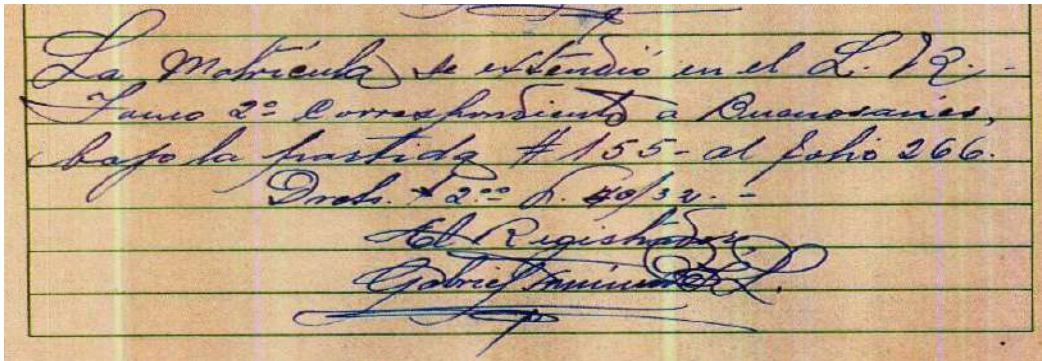 La Matrícula se extendió en el L. 12.-
Tomo 2º correspondiente a Buenosaires,
bajo la partida # 155- al folio 266.
Drchs. $ 2.ºº L. 40/32.-
El Registrador,
Gabriel